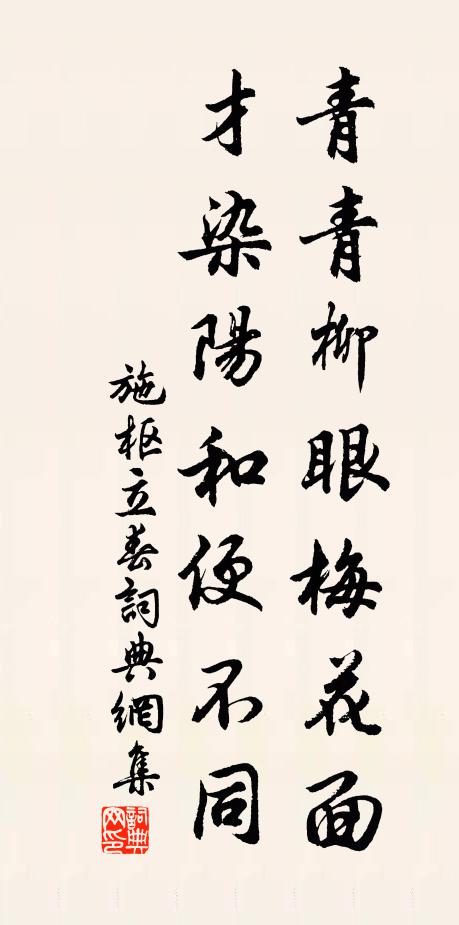 青青柳眼梅花面
才染陽和便不同
施枢立春詞典網集
詞典网印